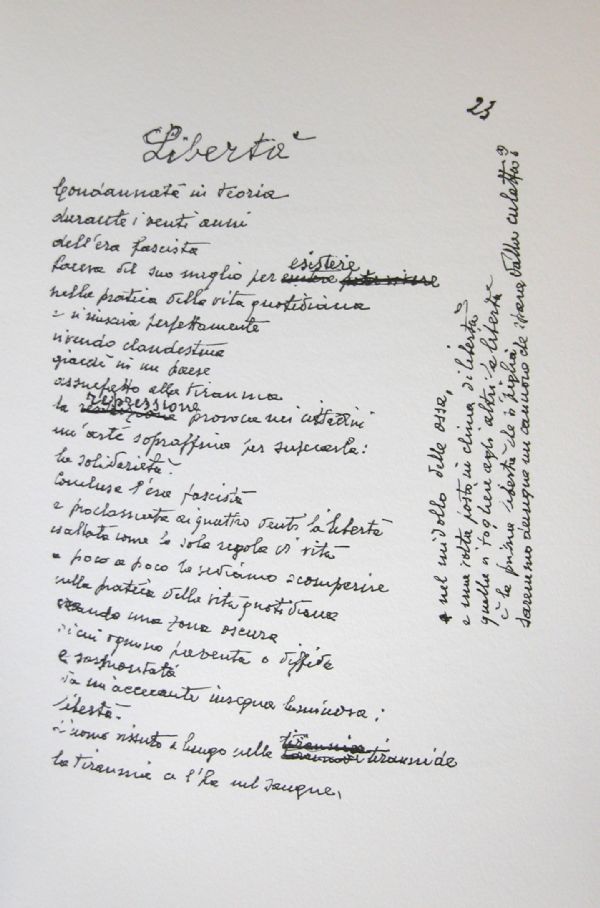 23
Libertà
Condannata in teoria
durante i venti anni
dell'era fascista
faceva del suo meglio per esistere
nella pratica della vita quotidiana
e riusciva perfettamente
vivendo clandestina
giacché in un paese
assuefatto alla tirannia
la repressione provoca nei cittadini
un'arte sopraffina per
la solidarietà.
Conclusa l'era fascista
e proclamata ai quattro venti la libertà
esaltata come la sola regola di vita
a poco a poco la vediamo scomparire
nella pratica della vita quotidiana
creando una zona oscura
di cui ognuno paventa o diffida
e sormontata
da un'accecante insegna luminosa:
libertà.
L'uomo vissuto a lungo nella tirannide
la tirannia ce l'ha nel sangue,
e nel midollo delle ossa,
e una volta posto in clima di libertà
quella di togliere agli altri la libertà
è la prima libertà che si piglia.
Saremo dunque un cannone che spara dalla culatta?